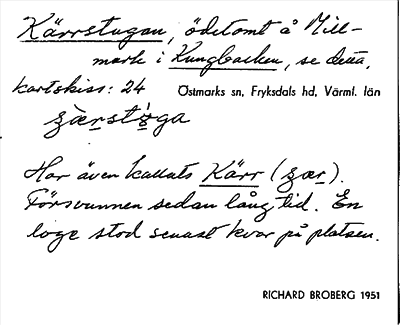 Kärrstugan, ödetomt å Mill-
mark i Kungbacken, se detta,
kartskiss: 24 Östmarks sn, Fryksdals hd, Värml. län
Har även kallats Kärr
Försvunnen sedan lång tid. En
loge stod senast kvar på platsen.
RICHARD BROBERG 1951